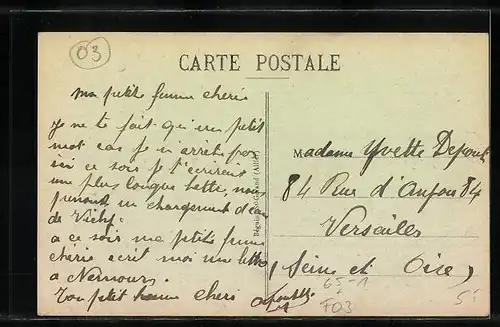 03
CARTE POSTALE
ma petite femme cherie
je ne te fait qu'un petit
mot car je n'arrête pas
ici ce soir je t'ecrirai
une plus longue lettre, nous
prenons un chargement d'eau
de Vichy.
a ce soir ma petite femme
cherie ecrit moi une lettre
a Nemours.
Ton petit homme cheri
Madame Yvette
84 Rue d'Anjou 84
Versailes
(Seine et Oise)
65-1
+
F03